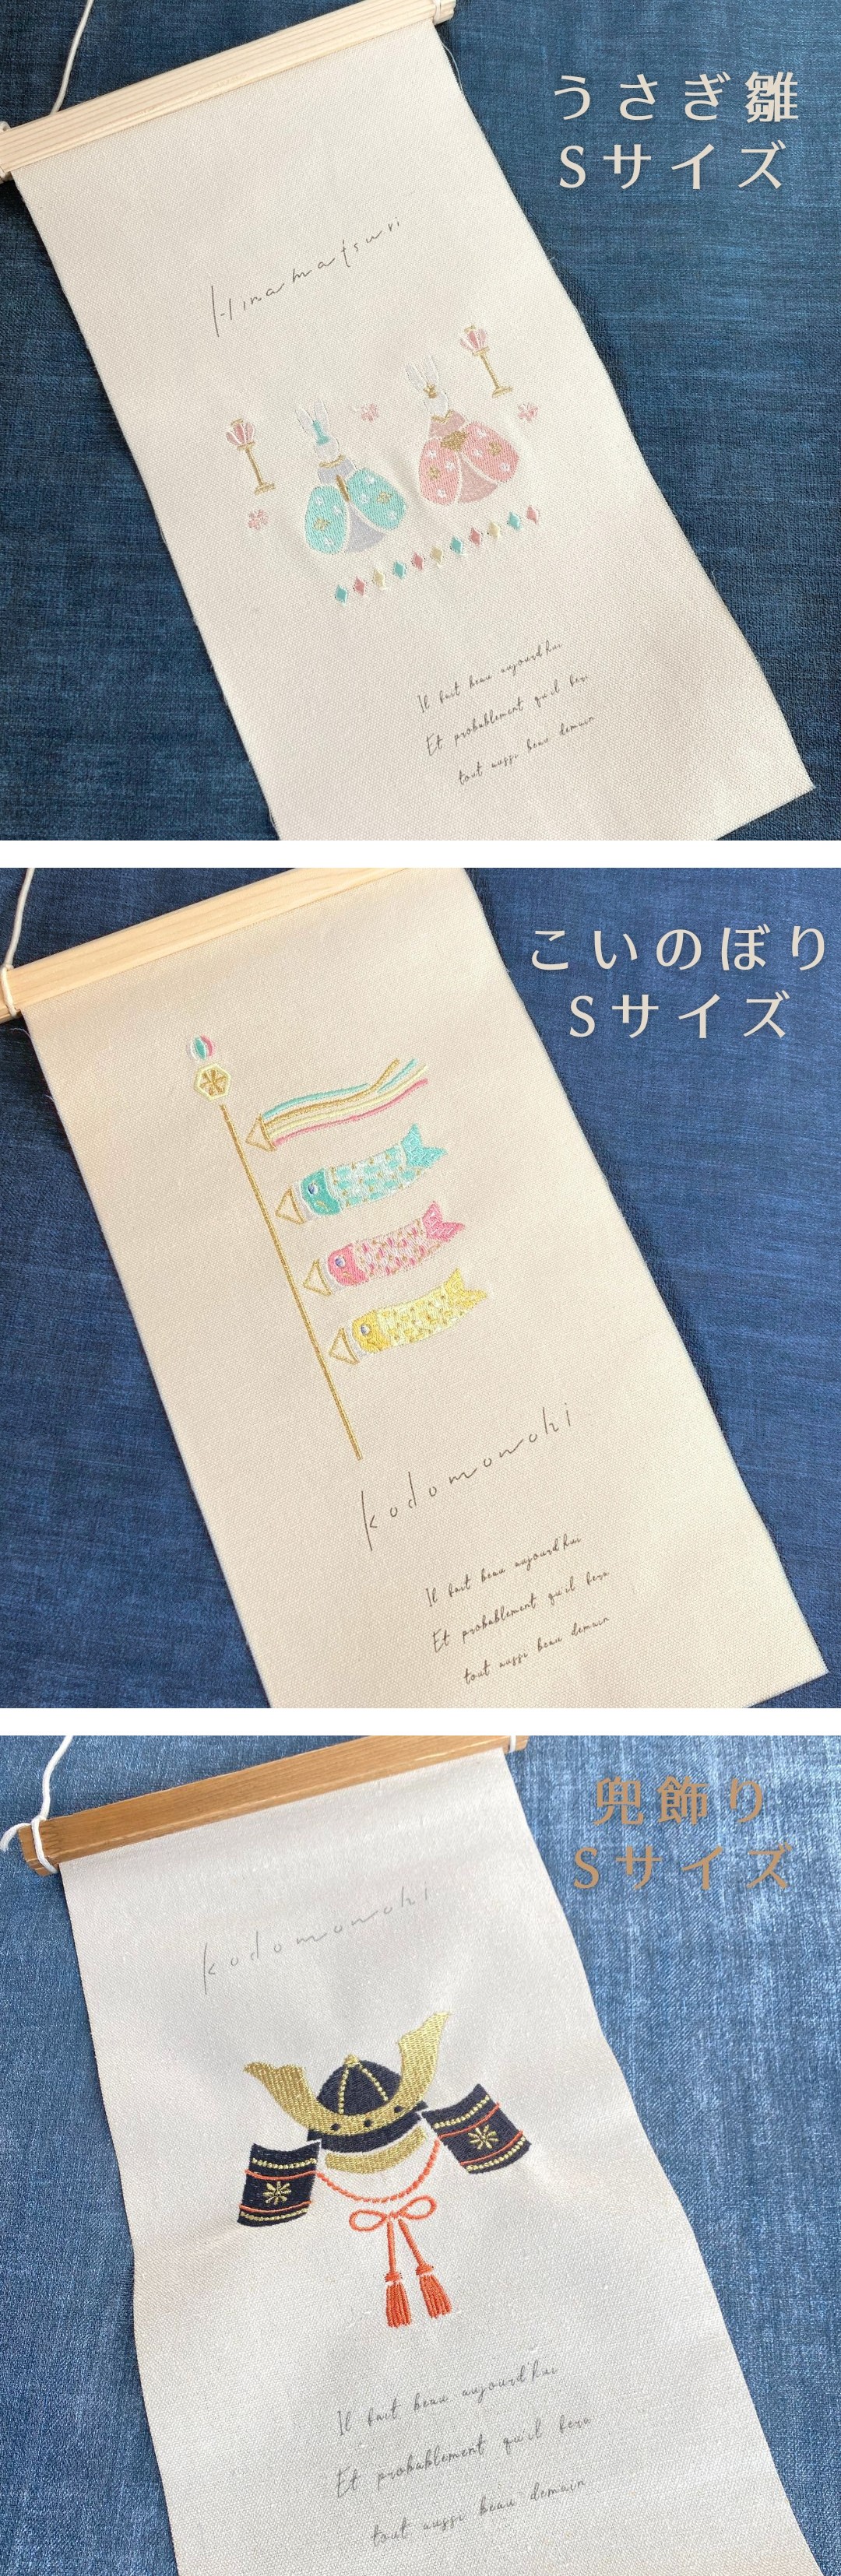 うさぎ雛
Sサイズ
Hinamatsuri
Il fait beau aujourd'hui
Et probablement qu'il fera
tout aussi beau demain
こいのぼり
Sサイズ
kodomonohi
Il fait beau aujourd'hui
Et probablement qu'il fera
tout aussi beau demain
兜飾り
Sサイズ
kodomonohi
Il fait beau aujourd'hui
Et probablement qu'il fera
tout aussi beau demain